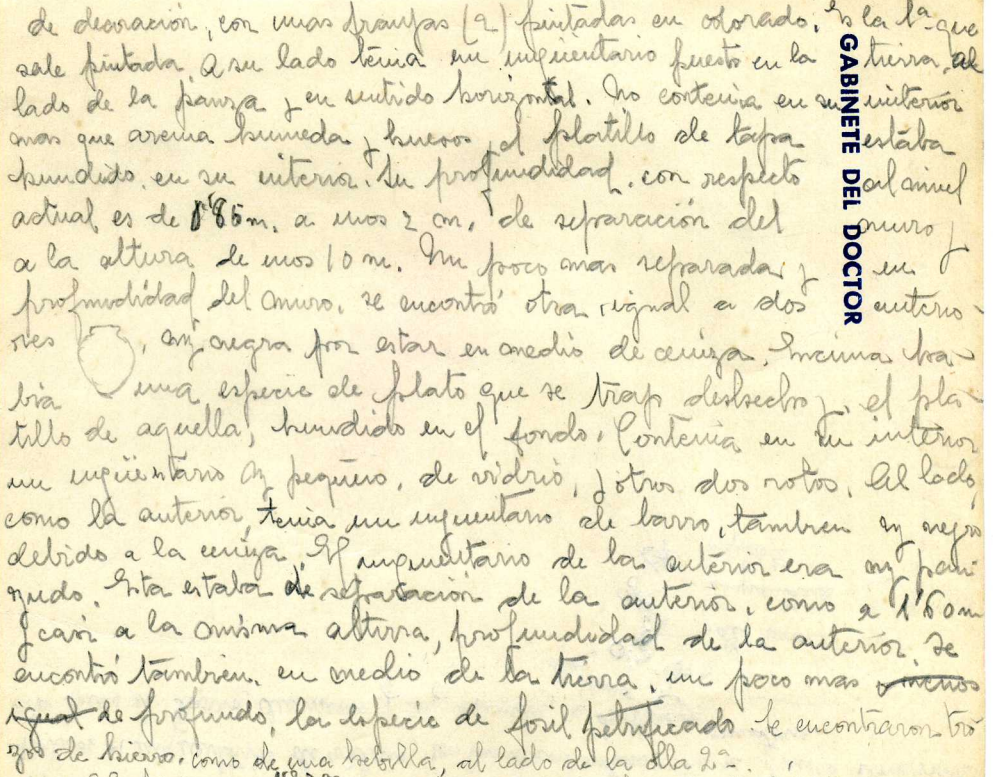 de decoración, con unas franjas (2) pintadas en colorado. Es la 1ª que
sale pintada. A su lado tenia un ungüentario puesto en la tierra, al
lado de la panza y en sentido horizontal. No contenia en su interior
mas que arena humeda y huesos y el platillo de tapa estaba
hundido en su interior. Su profundidad, con respecto al nivel
actual es de 1'85 m. a unos 2 cm. de separación del muro y
a la altura de unos 10 m. Un poco mas separada y en
profundidad del muro, se encontró otra, igual a dos anterio-
res , my negra por estar en medio de ceniza. Encima ha-
bia una especie de plato que se trajo deshecho y el pla-
tillo de aquella, hundido en el fondo. Contenia en su interior
un ungüentario my pequeño, de vidrio, y otros dos rotos. Al lado,
como la anterior, tenia un unguentario de barro, tambien my negro
debido a la ceniza. El unguentario de la anterior era my pan
zudo. Esta estaba de separación de la anterior, como a 1'60 m
y casi a la misma altura, profundidad de la anterior. Se
encontró tambien, en medio de la tierra, un poco mas o menos
igual de profundo, la especie de fosil petrificado. Se encontraron tro
zos de hierro, como de una hebilla, al lado de la olla 2ª.
GABINETE DEL DOCTOR